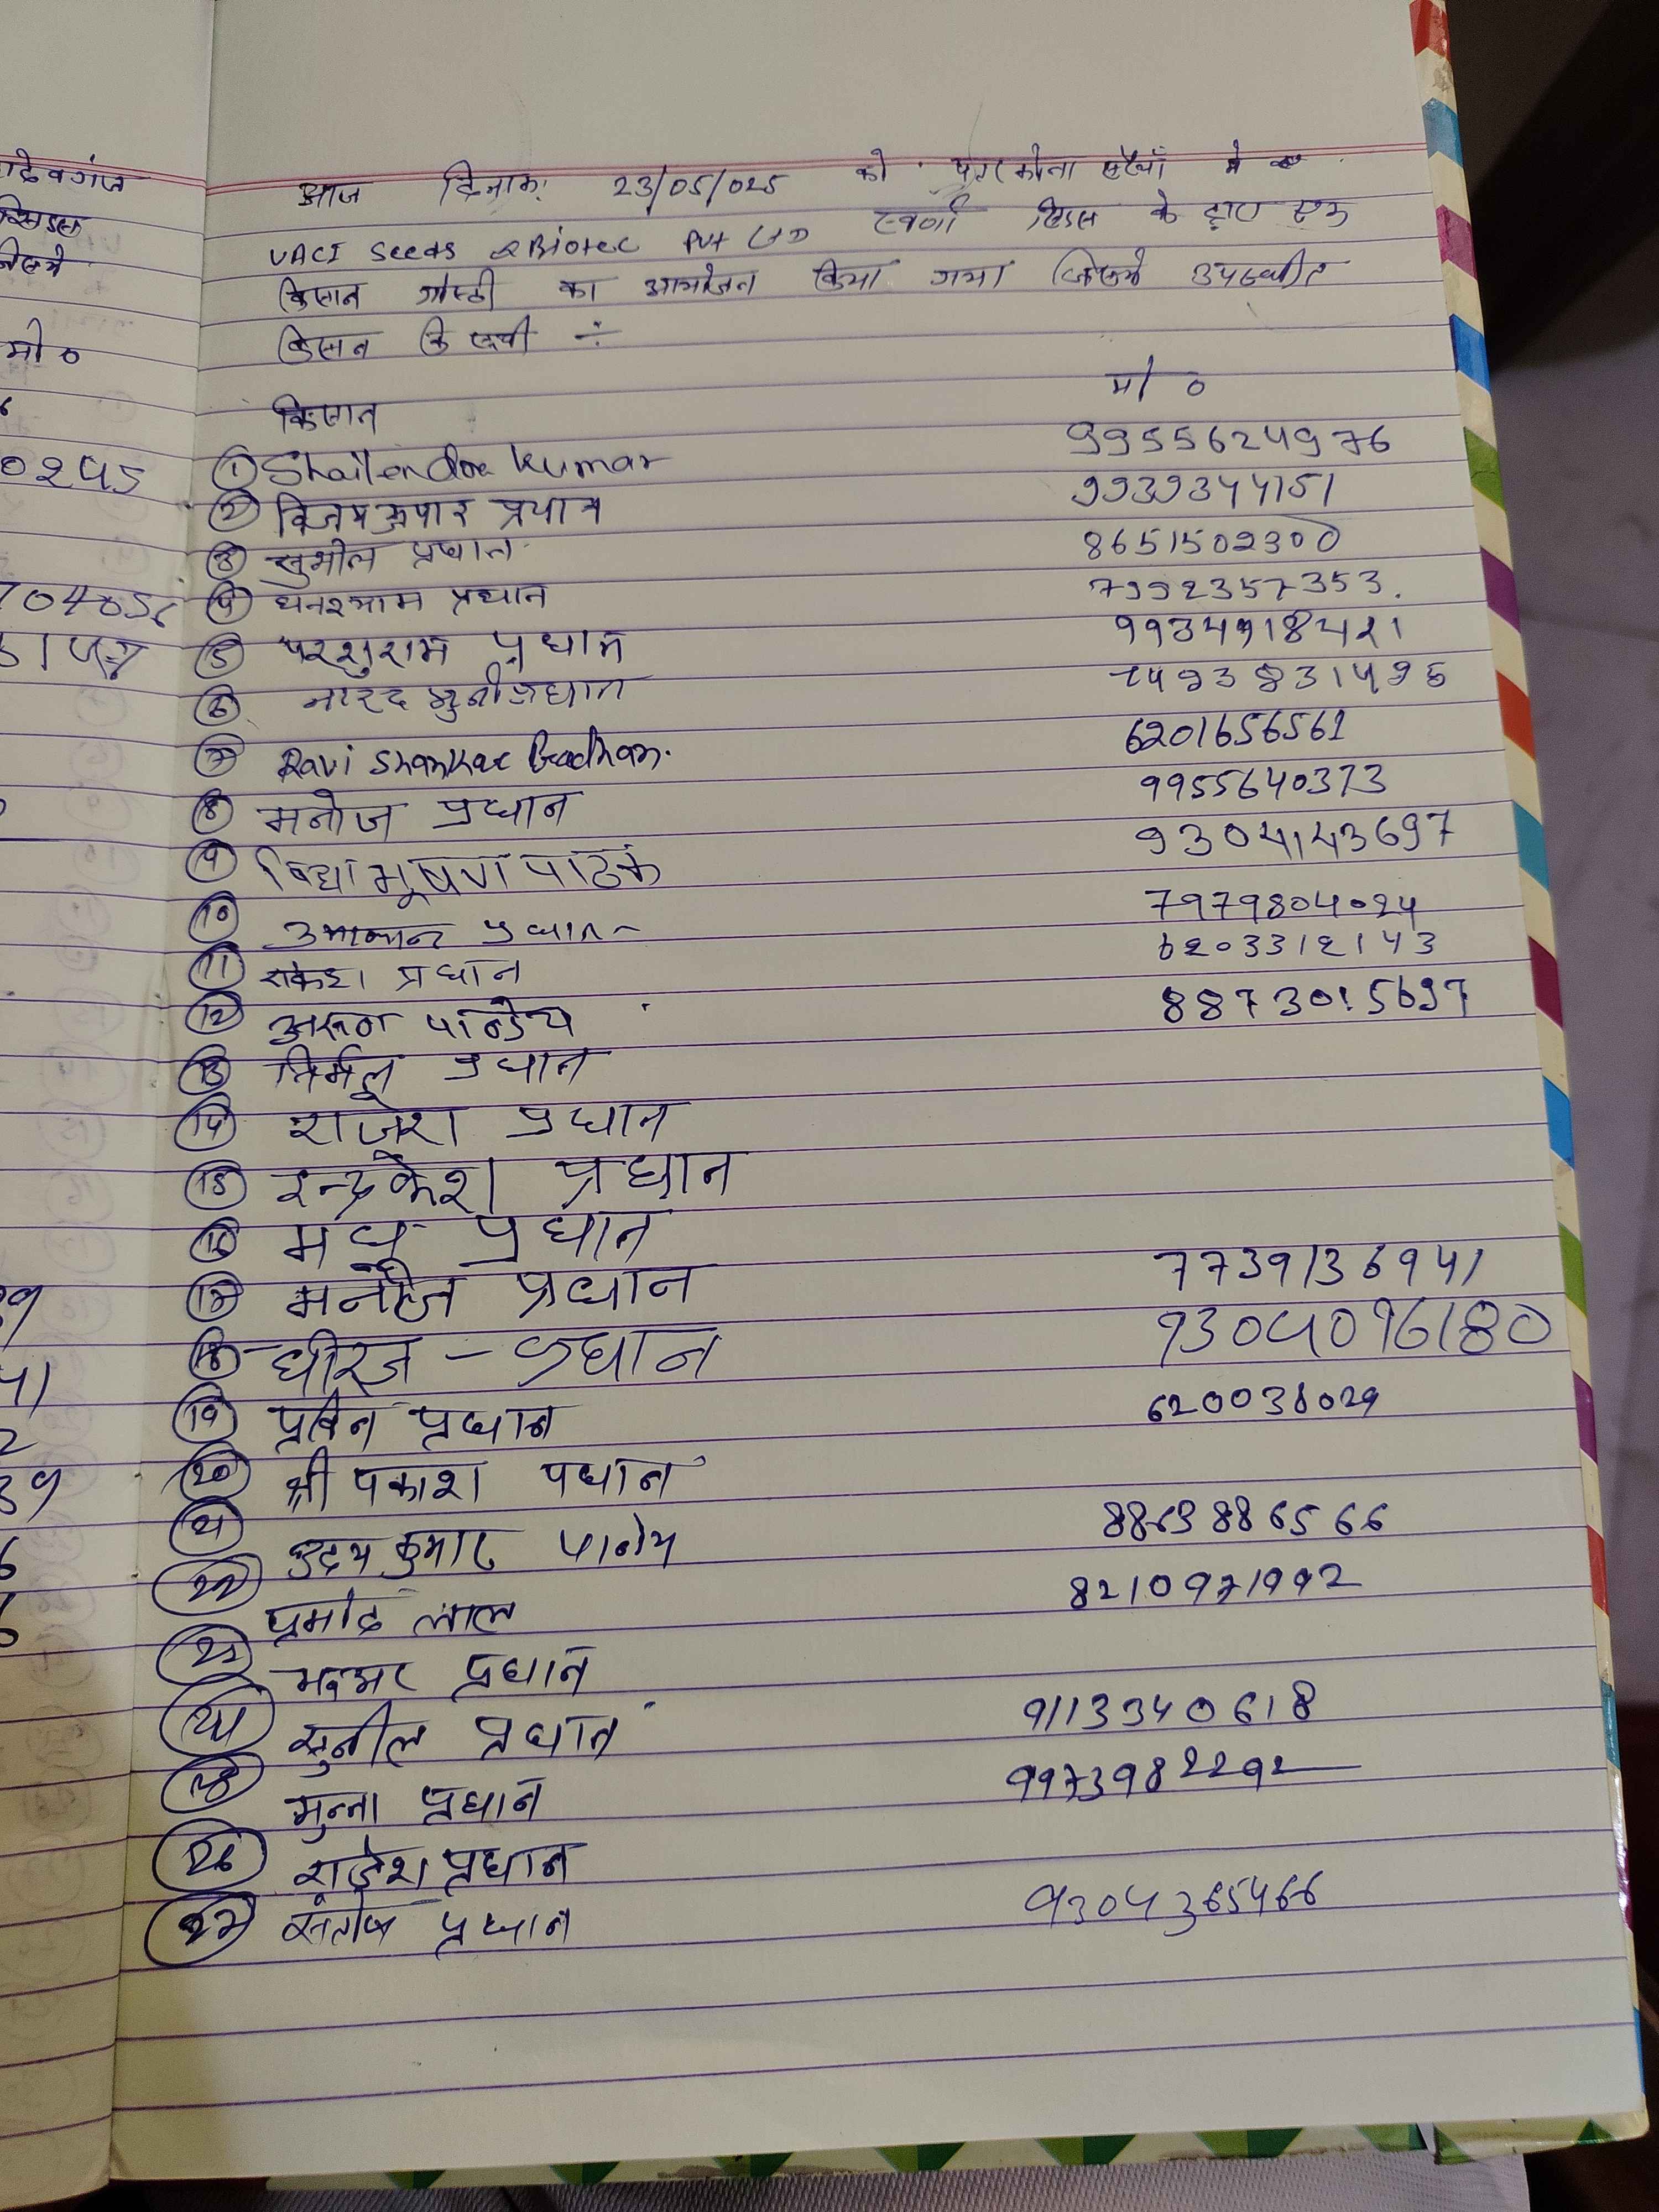 आज दिनांक: 23/05/025 को में
VACI Seeds & Biotec Pvt LTD स्वर्णा सिडस के द्वारा एक
किसान गोष्ठी का आयोजन किया गया जिसमे उपस्थीत
किसान कि सूची ÷
किसान मो०
① Shailendra kumar 9955624976
② विजय कुमार प्रधान 9939344151
③ सुशील प्रधान 8651502300
④ घनश्याम प्रधान 7992357353.
⑤ परशुराम प्रधान 9934918421
⑥ नारद मुनी प्रधान
⑦ Ravi Shankar Pradhan. 6201656561
⑧ मनोज प्रधान 9955640373
⑨ विद्या भूषण पाठक 9304143697
⑩ प्रधान 7979804024
⑪ राकेश प्रधान 6203312143
⑫ अरूण पान्डेय 8873015697
⑬ निर्मल प्रधान
⑭ राजेश प्रधान
⑮ इन्द्रकेश प्रधान
⑯ मधु प्रधान
⑰ मनोज प्रधान 7739136941
⑱ धीरज - प्रधान 9304096180
⑲ प्रविन प्रधान 620038029
⑳ श्री पकाश पधान
㉑ उदय कुमार पानेय 8863886566
㉒ प्रमोद लाल 8210971992
㉓ प्रधान
㉔ सुनील प्रधान 9113340618
㉕ मुन्ना प्रधान 9973982292
㉖ राजेश प्रधान
㉗ संतोष प्रधान 9304365466